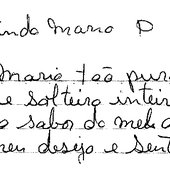 indo Mario P
Maria tão pur
e solteira inteir
o sabor do meu a
meu desejo e sent